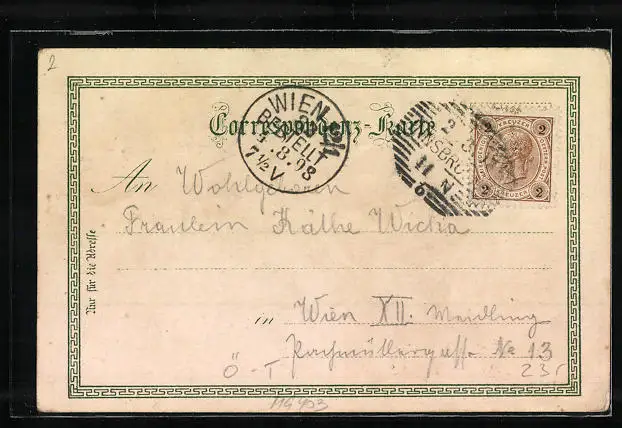 2
Correspondenz-Karte
WIEN
BESTELLT
.8.98
7½V
INNSBRUCK
2 8
11 N
6
KREUZER
2 2
2 2
KREUZER
An Wohlgeboren
Fräulein Käthe Wicha
Nur für die Adresse
in Wien XII. Meidling
No 13
Ö-T